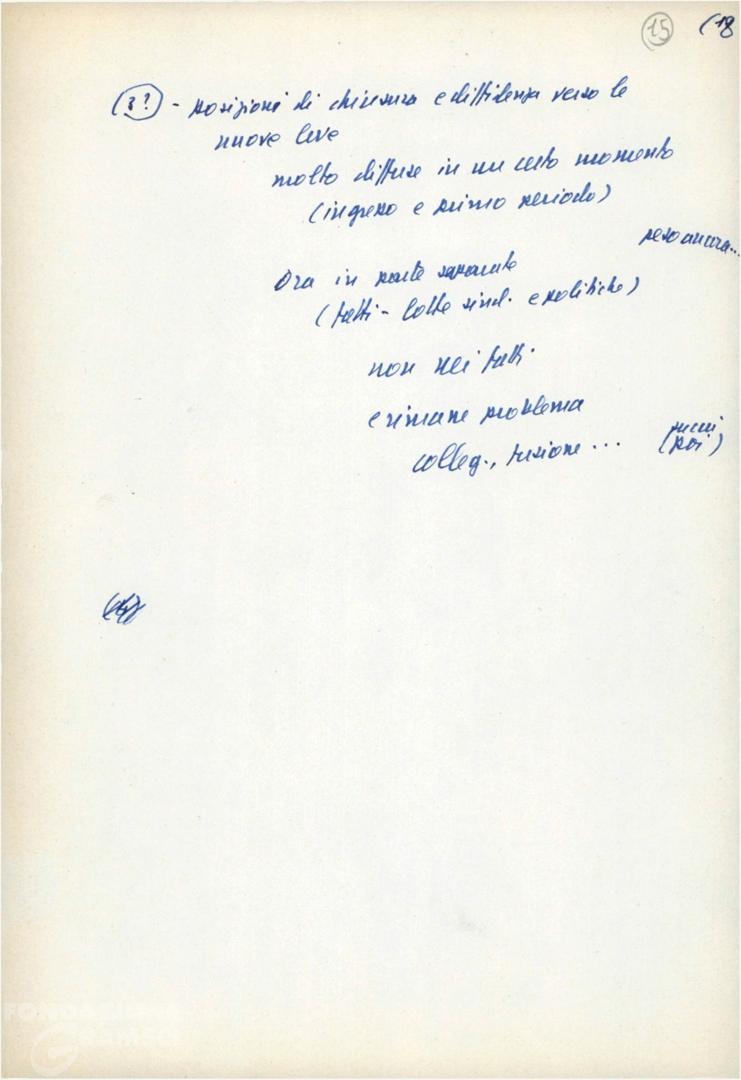 15 (18
(3?) - posizioni di chiusura e diffidenza verso le
nuove leve
molto diffuse in un certo momento
(ingresso e primo periodo)
peso ancora...
Ora in parte superate
(fatti - lotte sind. e politiche)
non nei fatti
e rimane problema
colleg., fusione ...
(poi)
FONDAZIONE
GRAMSCI